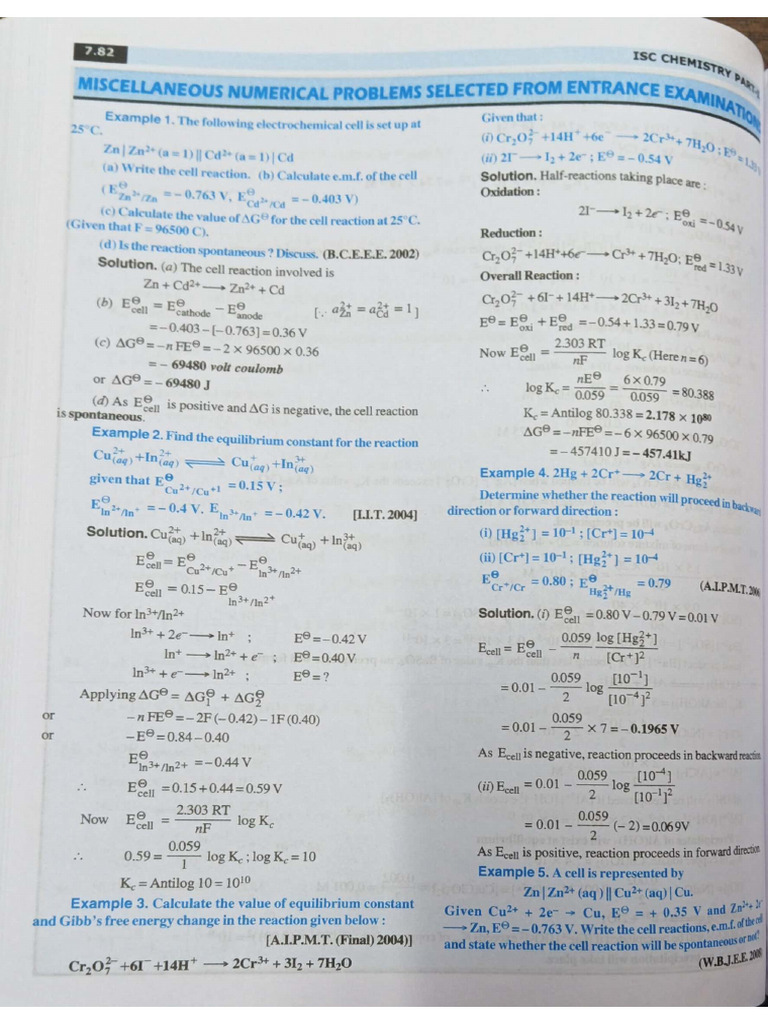 7.82
ISC CHEMISTRY PART-
MISCELLANEOUS NUMERICAL PROBLEMS SELECTED FROM ENTRANCE EXAMINATIONS
Example 1. The following electrochemical cell is set up at
25°C.
Zn | Zn²⁺ (a = 1) || Cd²⁺ (a = 1) | Cd
(a) Write the cell reaction. (b) Calculate e.m.f. of the cell
(E⊖ Zn²⁺/Zn = – 0.763 V, E⊖ Cd²⁺/Cd = – 0.403 V)
(c) Calculate the value of ΔG⊖ for the cell reaction at 25°C.
(Given that F = 96500 C).
(d) Is the reaction spontaneous ? Discuss. (B.C.E.E.E. 2002)
Solution. (a) The cell reaction involved is
Zn + Cd²⁺ ⟶ Zn²⁺ + Cd
(b) E⊖cell = E⊖cathode – E⊖anode [∵ a²⁺Zn = a²⁺Cd = 1]
= – 0.403 – [– 0.763] = 0.36 V
(c) ΔG⊖ = – n FE⊖ = – 2 × 96500 × 0.36
= – 69480 volt coulomb
or ΔG⊖ = – 69480 J
(d) As E⊖cell is positive and ΔG is negative, the cell reaction
is spontaneous.
Example 2. Find the equilibrium constant for the reaction
Cu²⁺(aq) + In²⁺(aq) ⇌ Cu⁺(aq) + In³⁺(aq)
given that E⊖ Cu²⁺/Cu⁺¹ = 0.15 V ;
E⊖ In²⁺/In⁺ = – 0.4 V. E⊖ In³⁺/In⁺ = – 0.42 V. [I.I.T. 2004]
Solution. Cu²⁺(aq) + In²⁺(aq) ⇌ Cu⁺(aq) + In³⁺(aq)
E⊖cell = E⊖ Cu²⁺/Cu⁺ – E⊖ In³⁺/In²⁺
E⊖cell = 0.15 – E⊖ In³⁺/In²⁺
Now for In³⁺/In²⁺
In³⁺ + 2e⁻ ⟶ In⁺ ; E⊖ = – 0.42 V
In⁺ ⟶ In²⁺ + e⁻ ; E⊖ = 0.40 V
In³⁺ + e⁻ ⟶ In²⁺ ; E⊖ = ?
Applying ΔG⊖ = ΔG⊖₁ + ΔG⊖₂
or – n FE⊖ = – 2F (– 0.42) – 1F (0.40)
or – E⊖ = 0.84 – 0.40
E⊖ In³⁺/In²⁺ = – 0.44 V
∴ E⊖cell = 0.15 + 0.44 = 0.59 V
Now E⊖cell = 2.303 RT / nF log Kc
∴ 0.59 = 0.059 / 1 log Kc ; log Kc = 10
Kc = Antilog 10 = 10¹⁰
Example 3. Calculate the value of equilibrium constant
and Gibb's free energy change in the reaction given below :
[A.I.P.M.T. (Final) 2004)]
Cr₂O₇²⁻ +6I⁻ +14H⁺ ⟶ 2Cr³⁺ + 3I₂ + 7H₂O
Given that :
(i) Cr₂O₇²⁻ +14H⁺ +6e⁻ ⟶ 2Cr³⁺ + 7H₂O ; E⊖ = 1.33 V
(ii) 2I⁻ ⟶ I₂ + 2e⁻ ; E⊖ = – 0.54 V
Solution. Half-reactions taking place are :
Oxidation :
2I⁻ ⟶ I₂ + 2e⁻ ; E⊖oxi = –0.54 V
Reduction :
Cr₂O₇²⁻ +14H⁺+6e⁻ ⟶ Cr³⁺ + 7H₂O; E⊖red = 1.33 V
Overall Reaction :
Cr₂O₇²⁻ + 6I⁻ + 14H⁺ ⟶ 2Cr³⁺ + 3I₂ + 7H₂O
E⊖ = E⊖oxi + E⊖red = – 0.54 + 1.33 = 0.79 V
Now E⊖cell = 2.303 RT / nF log Kc (Here n = 6)
∴ log Kc = nE⊖ / 0.059 = 6 × 0.79 / 0.059 = 80.388
Kc = Antilog 80.338 = 2.178 × 10⁸⁰
ΔG⊖ = –nFE⊖ = – 6 × 96500 × 0.79
= – 457410 J = – 457.41kJ
Example 4. 2Hg + 2Cr⁺ ⟶ 2Cr + Hg₂²⁺
Determine whether the reaction will proceed in backward
direction or forward direction :
(i) [Hg₂²⁺] = 10⁻¹ ; [Cr⁺] = 10⁻⁴
(ii) [Cr⁺] = 10⁻¹ ; [Hg₂²⁺] = 10⁻⁴
E⊖ Cr⁺/Cr = 0.80 ; E⊖ Hg₂²⁺/Hg = 0.79 (A.I.P.M.T. 200
Solution. (i) E⊖cell = 0.80 V – 0.79 V = 0.01 V
Ecell = E⊖cell – 0.059 / n log [Hg₂²⁺] / [Cr⁺]²
= 0.01 – 0.059 / 2 log [10⁻¹] / [10⁻⁴]²
= 0.01 – 0.059 / 2 × 7 = – 0.1965 V
As Ecell is negative, reaction proceeds in backward reaction
(ii) Ecell = 0.01 – 0.059 / 2 log [10⁻⁴] / [10⁻¹]²
= 0.01 – 0.059 / 2 (– 2) = 0.069V
As Ecell is positive, reaction proceeds in forward direction
Example 5. A cell is represented by
Zn | Zn²⁺ (aq ) || Cu²⁺ (aq) | Cu.
Given Cu²⁺ + 2e⁻ → Cu, E⊖ = + 0.35 V and Zn²⁺ + 2e⁻
⟶ Zn, E⊖ = – 0.763 V. Write the cell reactions, e.m.f. of the cell
and state whether the cell reaction will be spontaneous or not?
(W.B.J.E.E. 200